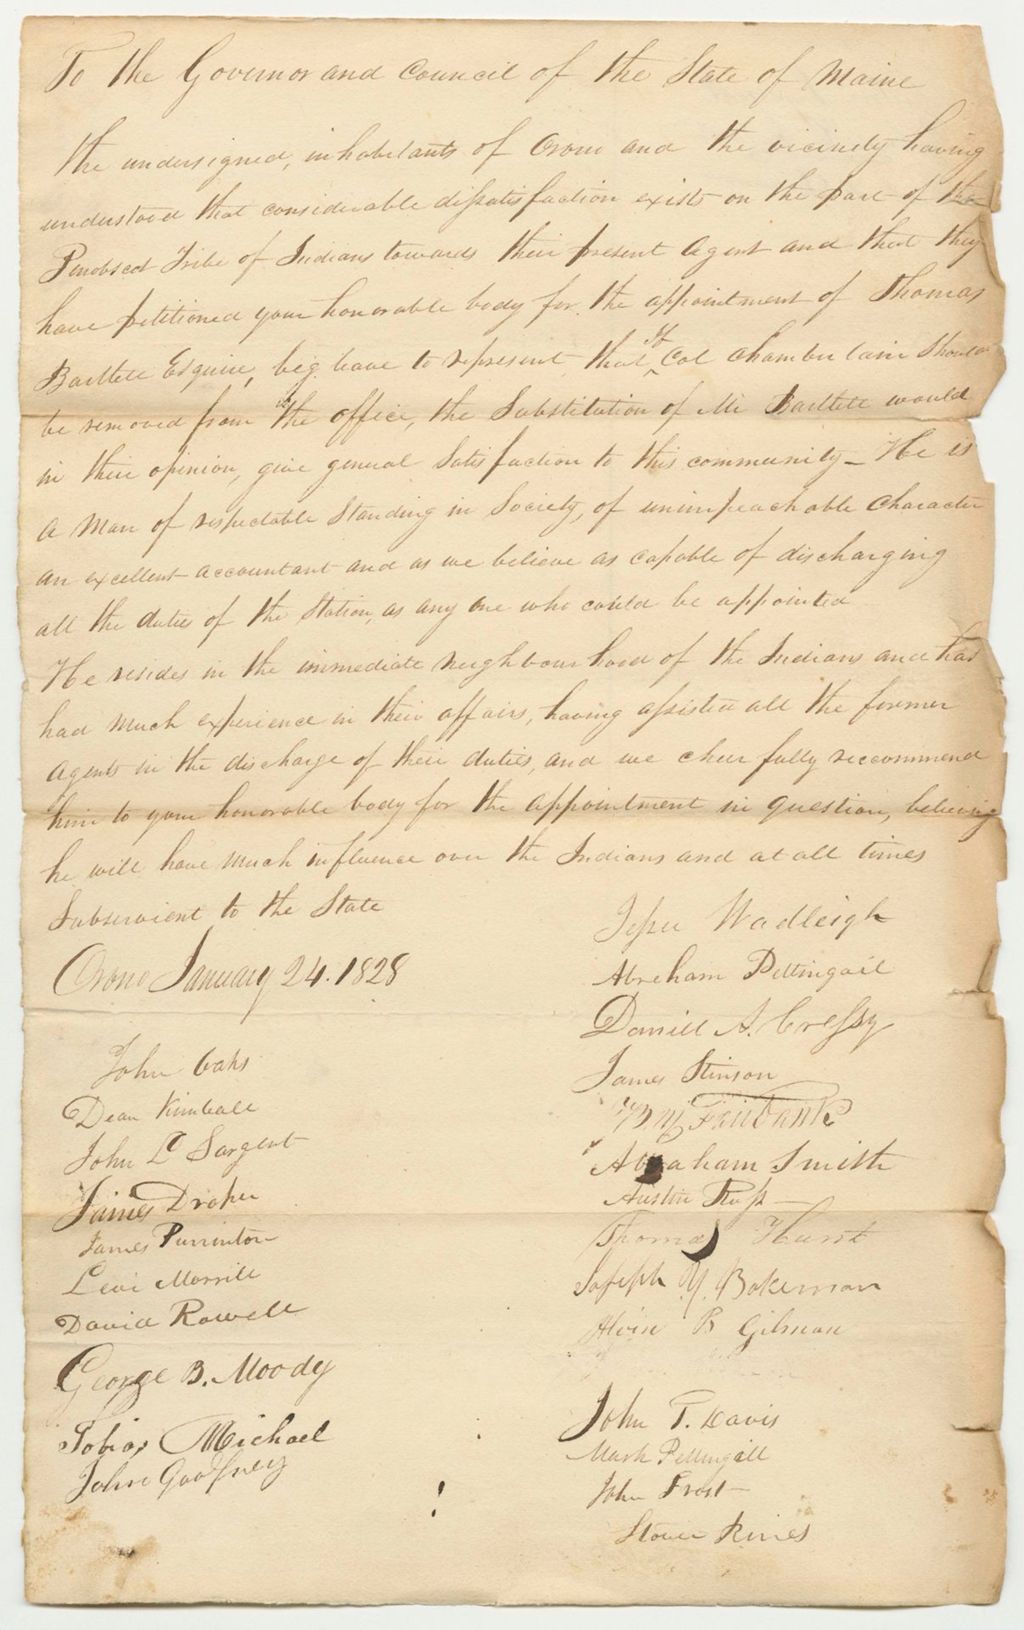 To the Governor and Council of the State of Maine
The undersigned, inhabitants of Orono and the vicinity having
understood that considerable dissatisfaction exists on the part of the
Penobscot Tribe of Indians towards their present Agent and that they
have petitioned your honorable body for the appointment of Thomas
Bartlett Esquire, beg leave to represent, that if Col Chamberlain should
be removed from the office, the Substitution of Mr Bartlett would
in their opinion, give general Satisfaction to this community — He is
a Man of respectable Standing in Society, of unimpeachable Character
an excellent accountant and as we believe as capable of discharging
all the duties of the Station, as any one who could be appointed
He resides in the immediate neighbourhood of the Indians and has
had much experience in their affairs, having assisted all the former
Agents in the discharge of their duties, and we cheerfully reccommend
him to your honorable body for the appointment in question, believing
he will have much influence over the Indians and at all times
Subservient to the State
Orono January 24. 1828
Jesse Wadleigh
Abraham Pettingail
Daniel A. Cressy
James Stinson
Fairbanks
Abraham Smith
Austin Ross
Thomas Hunt
Joseph Y. Bakeman
Alvin R Gilman
John T. Davis
Mark Pettingill
John Frost
Stover Rines
John Oaks
Dean Kimball
John L Sargent
James Draper
James Purrinton
Levi Morrill
David Rowell
George B. Moody
Tobias Michael
John Godfrey